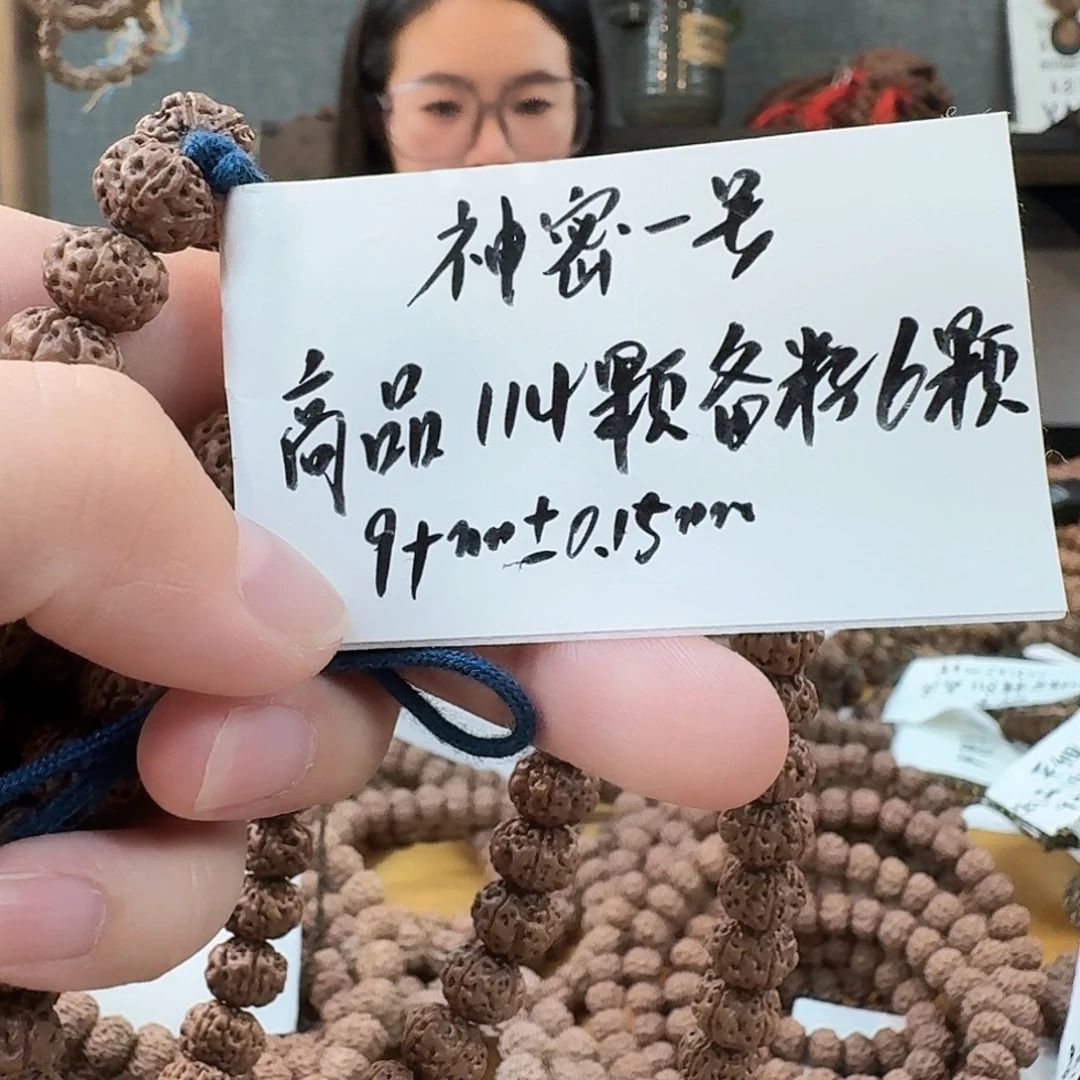 神密一号
商品114颗备籽6颗
9+mm±0.15mm